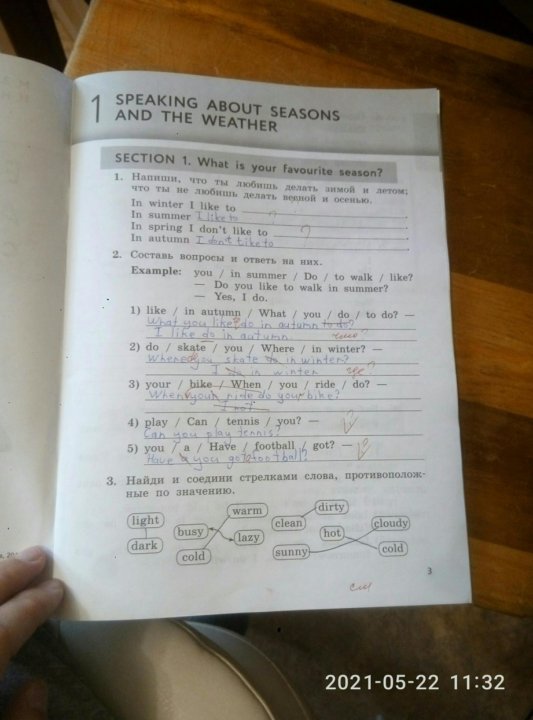 1 SPEAKING ABOUT SEASONS
AND THE WEATHER
SECTION 1. What is your favourite season?
1. Напиши, что ты любишь делать зимой и летом;
что ты не любишь делать весной и осенью.
In winter I like to
In summer I like to ?
In spring I don't like to ?
In autumn I don't like to
2. Составь вопросы и ответь на них.
Example: you / in summer / Do / to walk / like?
— Do you like to walk in summer?
— Yes, I do.
1) like / in autumn / What / you / do / to do? —
What you like do in autumn to do?
I like do in autumn.
2) do / skate / you / Where / in winter? —
Where you skate do in winter?
I in winter
3) your / bike / When / you / ride / do? —
When your ride do your bike?
I not
4) play / Can / tennis / you? —
Can you play tennis?
5) you / a / Have / football / got? —
Have a you got football?
3. Найди и соедини стрелками слова, противополож-
ные по значению.
light warm dirty
busy clean cloudy
dark lazy hot
cold sunny cold
3
2021-05-22 11:32